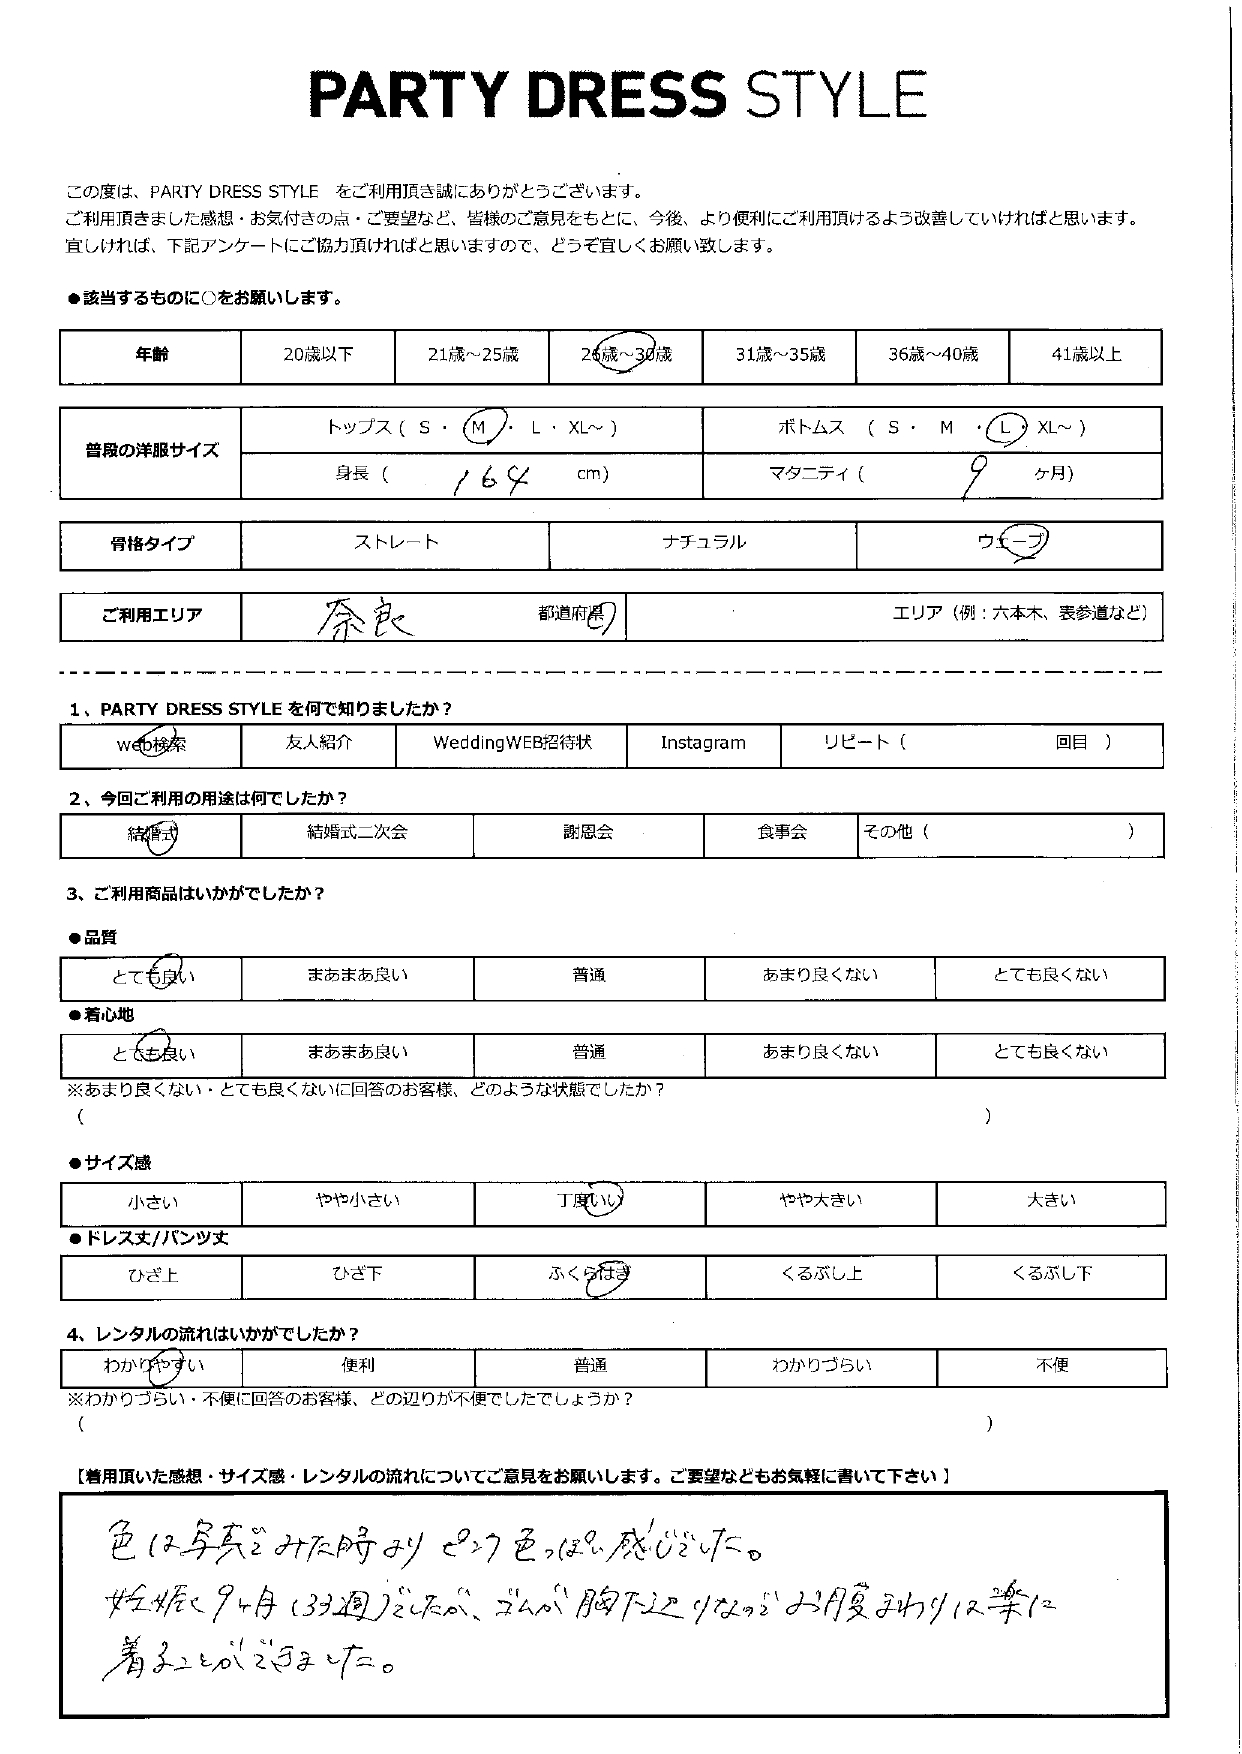 PARTY DRESS STYLE
この度は、PARTY DRESS STYLE　をご利用頂き誠にありがとうございます。
ご利用頂きました感想・お気付きの点・ご要望など、皆様のご意見をもとに、今後、より便利にご利用頂けるよう改善していければと思います。
宜しければ、下記アンケートにご協力頂ければと思いますので、どうぞ宜しくお願い致します。
●該当するものに○をお願いします。
年齢 20歳以下 21歳～25歳 26歳～30歳 31歳～35歳 36歳～40歳 41歳以上
普段の洋服サイズ トップス ( S ・ M ・ L ・ XL～ ) ボトムス ( S ・ M ・ L ・ XL～ )
身長 ( 164 cm) マタニティ ( 9 ヶ月)
骨格タイプ ストレート ナチュラル ウェーブ
ご利用エリア 奈良 都道府県 エリア（例：六本木、表参道など）
1、PARTY DRESS STYLE を何で知りましたか？
web検索 友人紹介 WeddingWEB招待状 Instagram リピート ( 回目 )
2、今回ご利用の用途は何でしたか？
結婚式 結婚式二次会 謝恩会 食事会 その他 ( )
3、ご利用商品はいかがでしたか？
●品質
とても良い まあまあ良い 普通 あまり良くない とても良くない
●着心地
とても良い まあまあ良い 普通 あまり良くない とても良くない
※あまり良くない・とても良くないに回答のお客様、どのような状態でしたか？
( )
●サイズ感
小さい やや小さい 丁度いい やや大きい 大きい
●ドレス丈/パンツ丈
ひざ上 ひざ下 ふくらはぎ くるぶし上 くるぶし下
4、レンタルの流れはいかがでしたか？
わかりやすい 便利 普通 わかりづらい 不便
※わかりづらい・不便に回答のお客様、どの辺りが不便でしたでしょうか？
( )
【着用頂いた感想・サイズ感・レンタルの流れについてご意見をお願いします。ご要望などもお気軽に書いて下さい】
色は写真でみた時より ピンク色っぽい感じでした。
妊娠9ヶ月(33週)でしたが、ゴムが胸下辺りなのでお腹まわりは楽に
着ることができました。